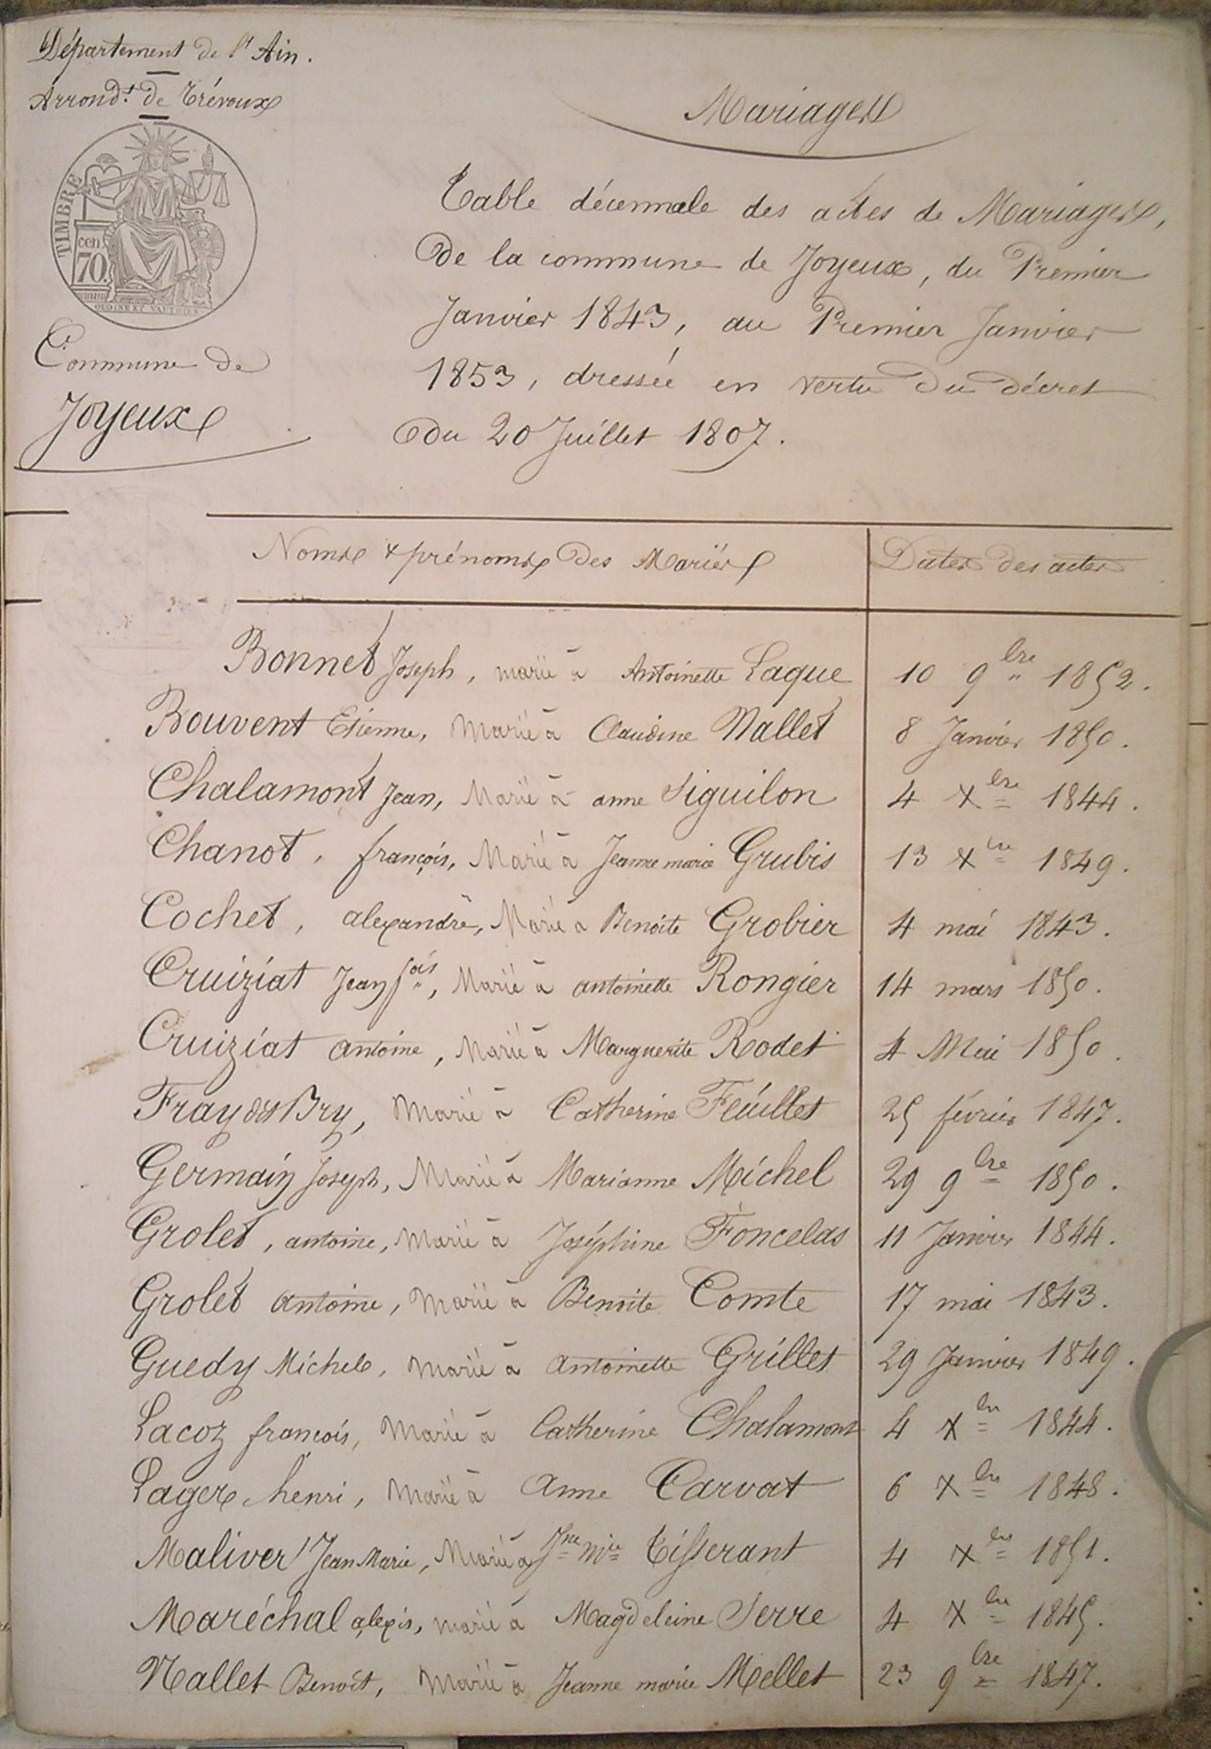 Département de l'Ain.
Arrond.t de Trévoux
TIMBRE
cen.
70.
Commune de
Joyeux
Mariages
Table décennale des actes de Mariages,
de la commune de Joyeux, du Premier
Janvier 1843, au Premier Janvier
1853, dressée en vertu du décret
du 20 Juillet 1807.
Noms & prénoms des Mariés Dates des actes
Bonnet Joseph, marié à Antoinette Laque 10 9bre 1852.
Bouvent Etienne, Marié à Claudine Nallet 8 Janvier 1850.
Chalamont Jean, Marié à anne Siguilon 4 Xbre 1844.
Chanot, françois, Marié à Jeanne marie Grubis 13 Xbre 1849.
Cochet, alexandre, Marié à Benoite Grobier 4 mai 1843.
Cruiziat Jean fois, Marié à antoinette Rongier 14 mars 1850.
Cruiziat antoine, Marié à Marguerite Rodet 4 Mai 1850.
Fray dit Bry, Marié à Catherine Feuillet 25 février 1847.
Germain Joseph, Marié à Marianne Michel 29 9bre 1850.
Grolet, antoine, Marié à Joséphine Foncelas 11 Janvier 1844.
Grolet antoine, Marié à Benoite Comte 17 mai 1843.
Guedy Michel, Marié à antoinette Grillet 29 Janvier 1849.
Lacoz françois, Marié à Catherine Chalamont 4 Xbre 1844.
Lager henri, Marié à Anne Carvat 6 Xbre 1848.
Maliver Jean Marie, Marié à Jne Mie Tisserant 4 Xbre 1851.
Maréchal alexis, marié à Magdeleine Serre 4 Xbre 1845.
Nallet Benoit, Marié à Jeanne marie Mellet 23 9bre 1847.